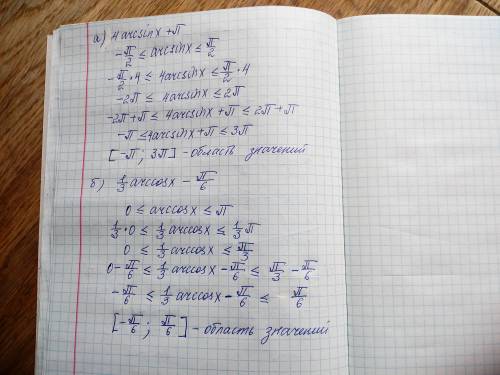 а) 4 arcsin x + π
-π/2 ≤ arcsin x ≤ π/2
-π/2 · 4 ≤ 4 arcsin x ≤ π/2 · 4
-2π ≤ 4 arcsin x ≤ 2π
-2π + π ≤ 4 arcsin x + π ≤ 2π + π
-π ≤ 4 arcsin x + π ≤ 3π
[-π; 3π] - область значений
б) 1/3 arccos x - π/6
0 ≤ arccos x ≤ π
1/3 · 0 ≤ 1/3 arccos x ≤ 1/3 π
0 ≤ 1/3 arccos x ≤ π/3
0 - π/6 ≤ 1/3 arccos x - π/6 ≤ π/3 - π/6
-π/6 ≤ 1/3 arccos x - π/6 ≤ π/6
[-π/6; π/6] - область значений